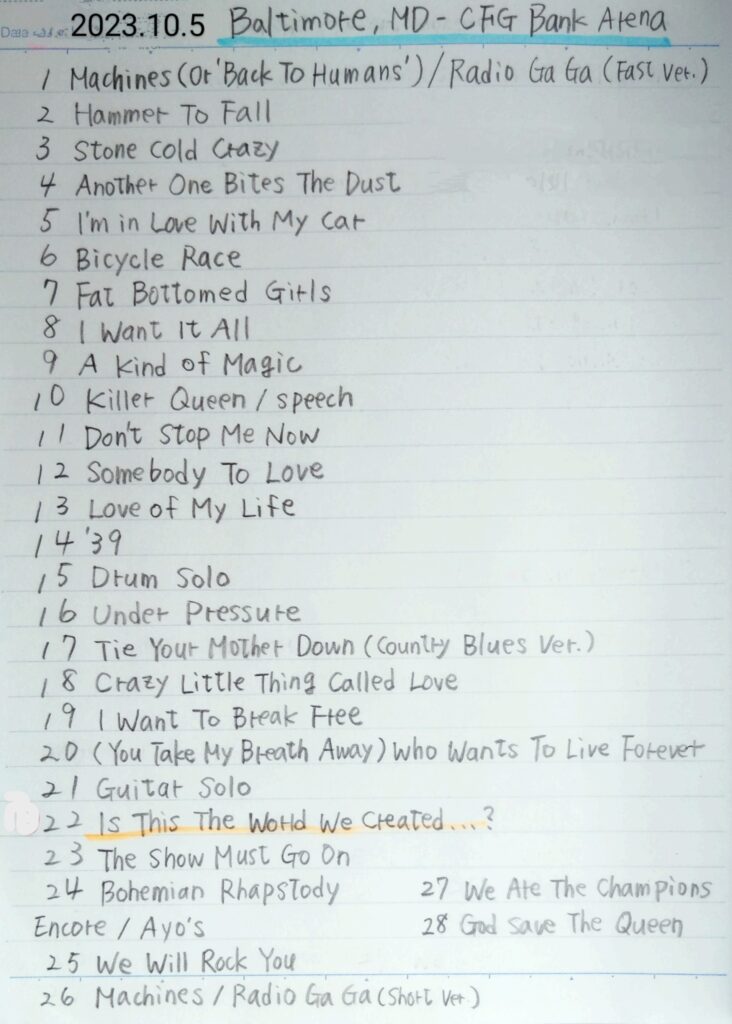 2023.10.5 Baltimore, MD - CFG Bank Arena
1 Machines (Or 'Back To Humans') / Radio Ga Ga (Fast Ver.)
2 Hammer To Fall
3 Stone Cold Crazy
4 Another One Bites The Dust
5 I'm in Love With My Car
6 Bicycle Race
7 Fat Bottomed Girls
8 I Want It All
9 A Kind of Magic
10 Killer Queen / speech
11 Don't Stop Me Now
12 Somebody To Love
13 Love of My Life
14 '39
15 Drum Solo
16 Under Pressure
17 Tie Your Mother Down (Country Blues Ver.)
18 Crazy Little Thing Called Love
19 I Want To Break Free
20 (You Take My Breath Away) Who Wants To Live Forever
21 Guitar Solo
22 Is This The World We Created...?
23 The Show Must Go On
24 Bohemian Rhapstody
Encore / Ayo's
25 We Will Rock You
26 Machines / Radio Ga Ga (Short Ver.)
27 We Are The Champions
28 God Save The Queen